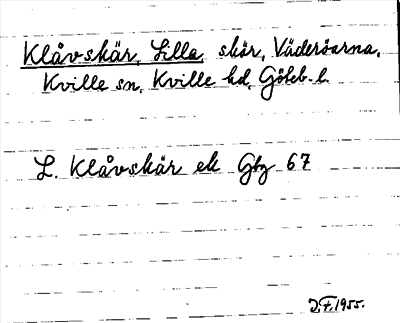 Klåvskär, Lilla, skär, Väderöarna,
Kville sn, Kville hd, Göteb. l.
L. Klåvskär ek Gbg 67
J.F. 1955.